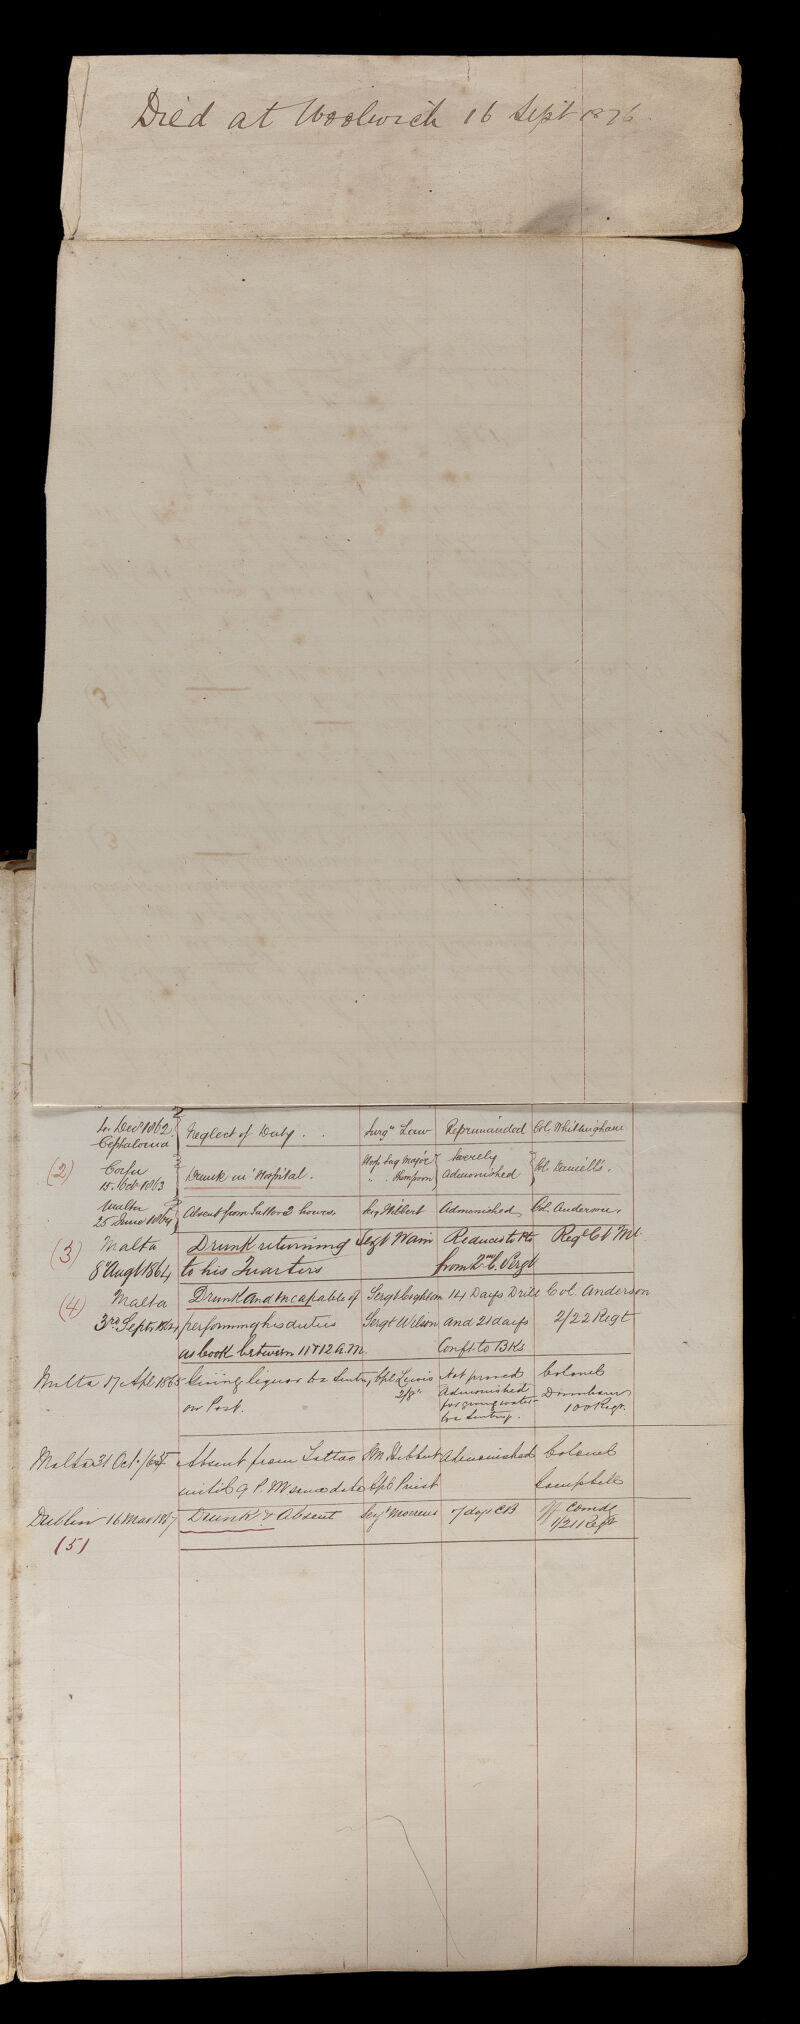 Died at Woolwich 16 Sept 1876.
4. Decr 1862. Neglect of Duty. . . Surgn Law Reprimanded Col. Whittingham
Cephalonia
(2) Corfu Drunk in Hospital. Hosp. Sag Major Severely Col. Daniell's.
15. Oct 1863 " . Thompson admonished
Malta Absent from Tattoo 2 hours. Admonished Col. Anderson
25 June 1864
(3) Malta Drunk returning Sergt Wain Reduced to Pte Regl Ct Ml.
8 Augt 1864 to his Quarters from 2nd C. Sergt
(4) Malta Drunk and incapable of Sergt 14 Days Drill Col. Anderson
3rd Septr 1864 performing his duties Sergt Wilson and 21 days 2/22 Regt
as cook between 11 & 12 A.M. Conft to Bks
Malta 17 Apl 1865 Giving liquor to a Sentry Cpl Lewis Not proved Colonel
on Post. 2/8" Admonished
for giving water 100 Regt.
to a Sentry.
Malta 31 Oct. /65 Absent from Tattoo Hibbert Admonished Colonel
until 9 P.M same date Cpl Priest Campbell
Dublin 16 Mar 1867 Drunk & Absent Sergt 7 days CB Off Comdg
(5) 1/21 Regt